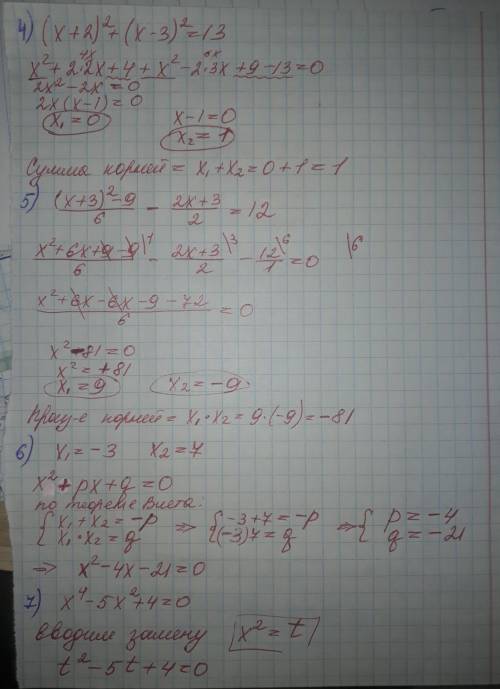 4) (x+2)²+(x-3)²=13
4x 6x
x²+2·2x+4+x²-2·3x+9-13=0
2x²-2x=0
2x(x-1)=0
x₁=0 x-1=0
x₂=1
Сумма корней = x₁+x₂=0+1=1
5) (x+3)²-9/6 - 2x+3/2 =12
x²+6x+9-9\1/6 - 2x+3\3/2 - 12\6/1 =0 \6
x²+6x-6x-9-72/6 =0
x²-81=0
x²=+81
x₁=9 x₂=-9.
Произ-е корней = x₁·x₂=9·(-9)=-81
6) x₁=-3 x₂=7
x²+px+q=0
по теореме Виета:
{x₁+x₂=-p ⇒ {-3+7=-p ⇒ {p=-4
{x₁·x₂=q {(-3)7=q {q=-21
⇒ x²-4x-21=0
7) x⁴-5x²+4=0
вводим замену x²=t
t²-5t+4=0